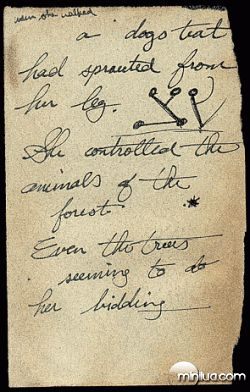 when she walked
a dogs trat
had sprouted from
her leg.
She controlled the
animals of the
forest.
Even the trees
seeming to do
her bidding
minilua.com